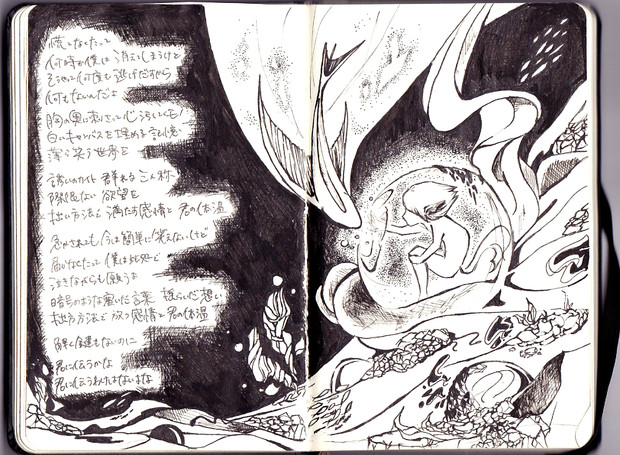 慌てなくたって
何時か僕は消えてしまうけど
そうやって何度も逃げだすから
何もないんだよ
胸の奥に刺さって
白いキャンバスを埋める記憶
薄ら笑う世界を
誘いの 群れる三人称
際限ない 欲望を
拙い方法で満たす感情と君の体温
急かされても今は簡単に笑えないけど
届かなくたって僕は此処で
泣きながらも願うよ
暗号のような置いた言葉 揺らいだ想い
拙い方法で放つ感情と君の体温
解く鍵もないのに
君に伝うかな
君に伝うわけはないよな